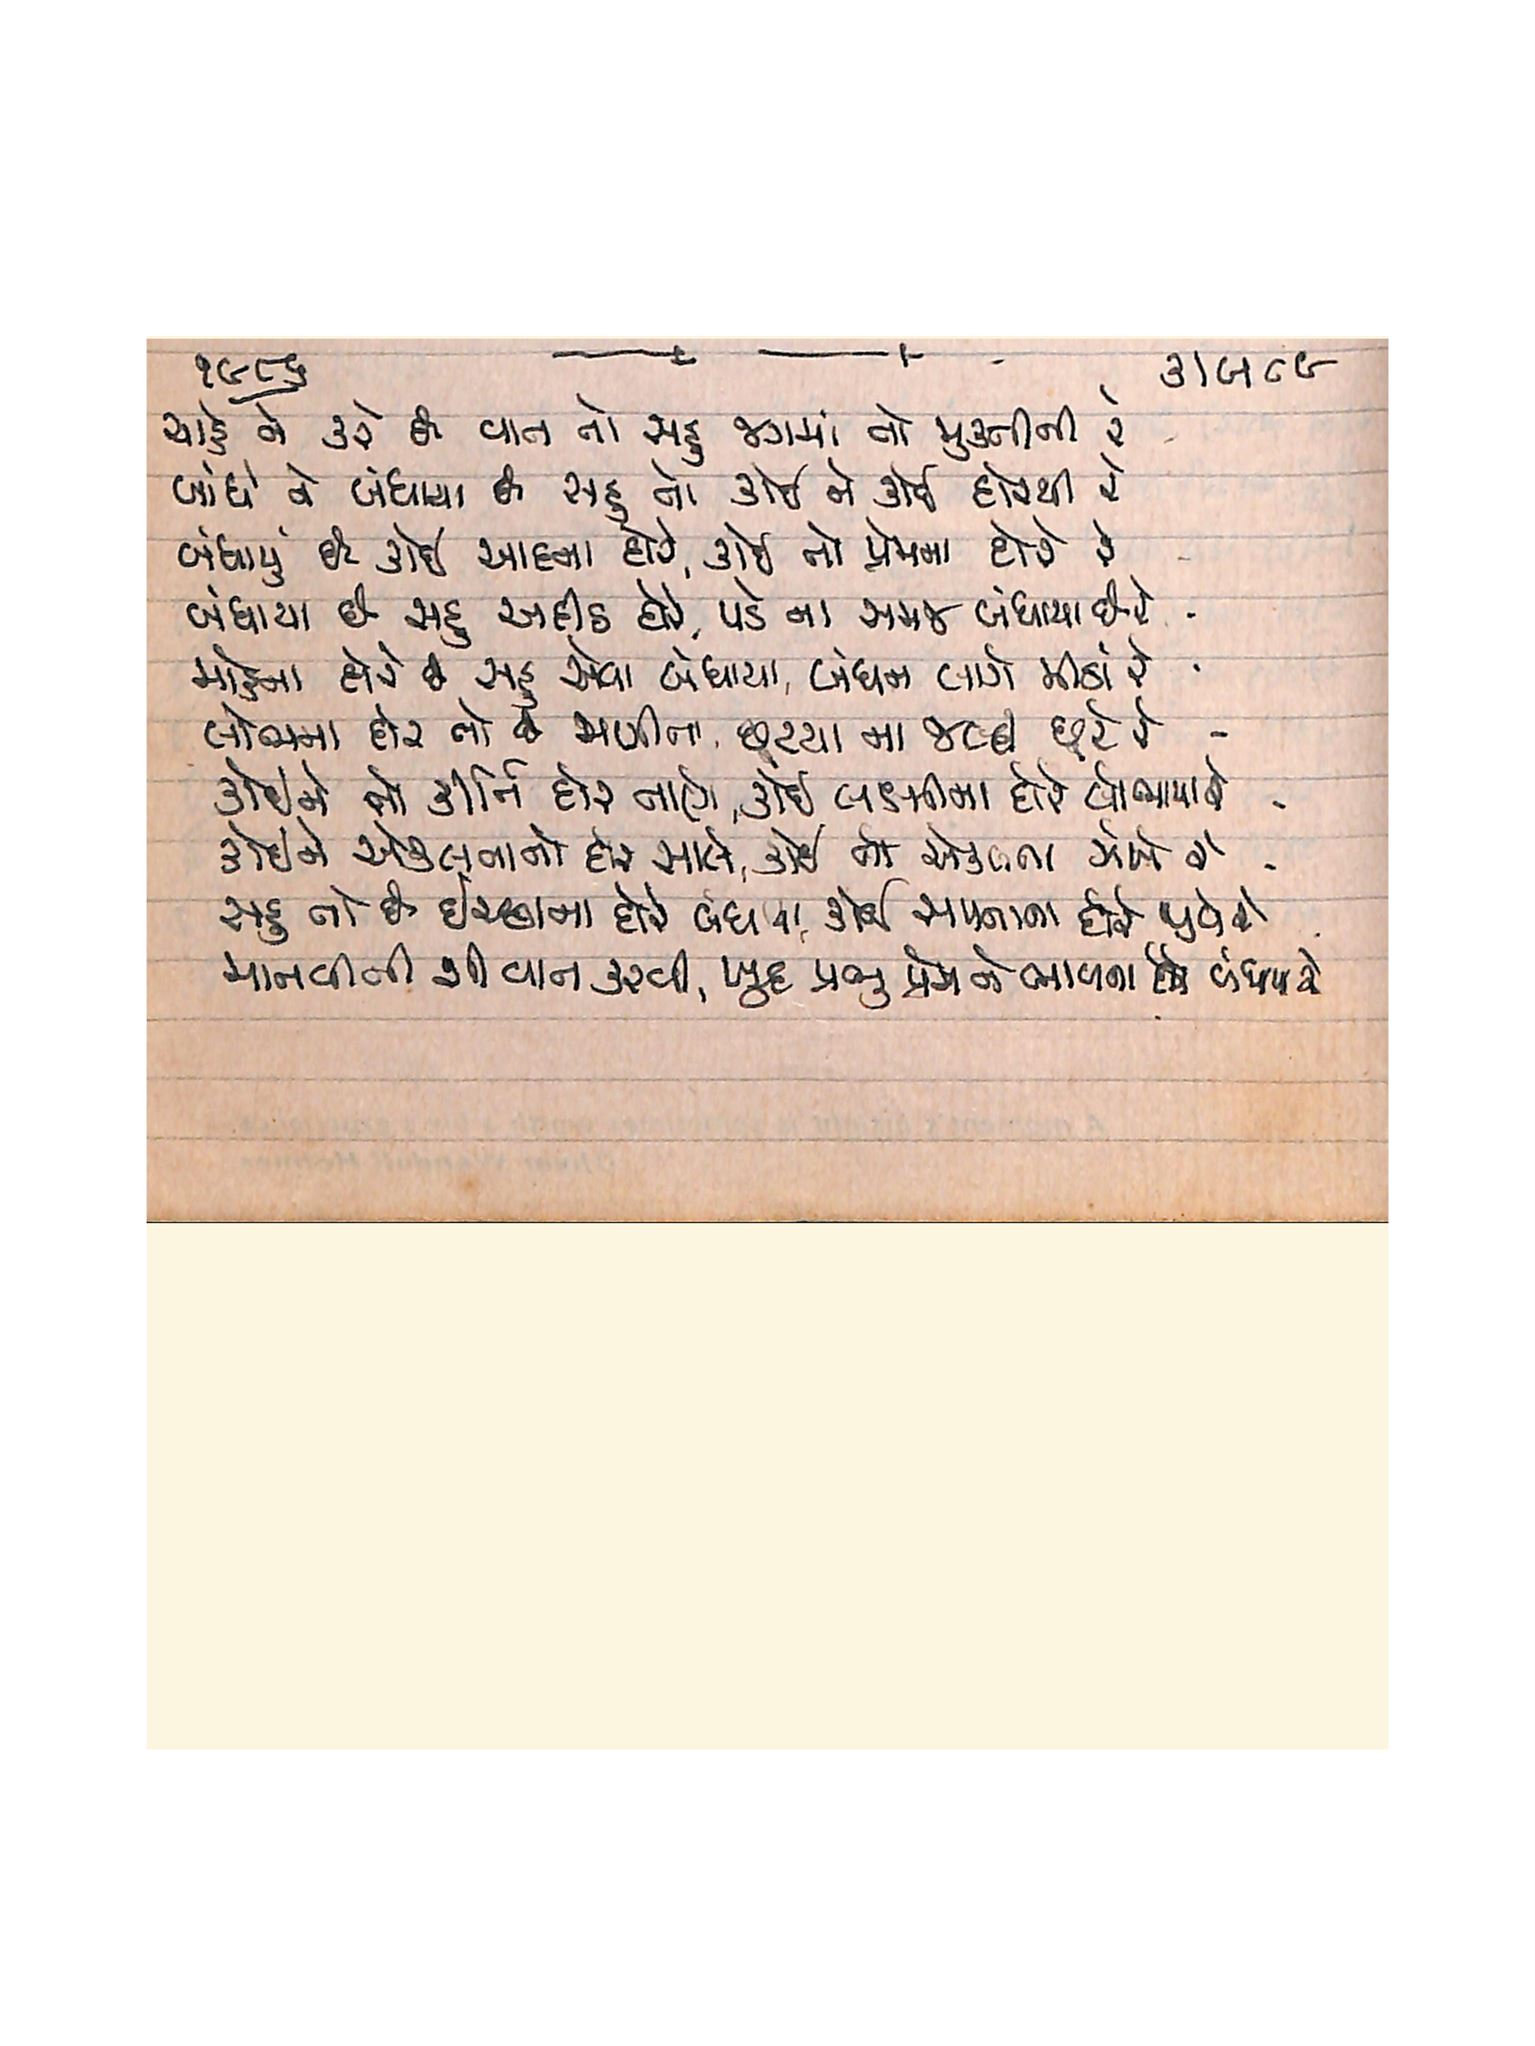 ૧૯૮૬ ૩૧૫૮૯
ચાહે ને કરે છે વાત તો સહુ જગમાં તો મુક્તીની રે
બાંધે ને બંધાયા છે સહુ તો કોઈ ને કોઈ દોરથી રે
બંધાયું છે કોઈ આદતના દોરે, કોઈ તો પ્રેમના દોરે રે
બંધાયા છે સહુ અહીંક દોરે, પડે ના સમજ બંધાયા છે રે
મોહના દોરે છે સહુ એવા બંધાયા, બંધન લાગે મીઠાં રે
લોભના દોર તો છે મળીના, છૂટયા ના જલ્દી છૂટે રે
કોઈને તો કીર્તિ દોર તાણે, કોઈ લક્ષ્મીના દોરે લોભાયા રે
કોઈને એકલતાનો દોર સાલે, કોઈ તો એકલતા ઝંખે રે
સહુ તો છે ઈચ્છાના દોરે બંધાયા, કોઈ સપનાના દોરે ઝુલે રે
માનવીની શી વાત કરવી, ખુદ પ્રભુ પ્રેમ ને ભાવના દોરે બંધાયા રે